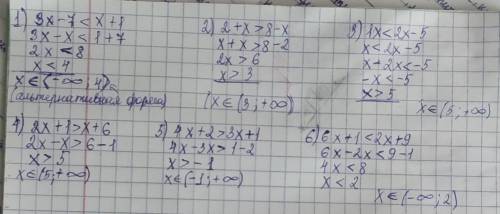 1) 3x-7 < x+1
3x-x<1+7
2x <8
x<4
x∈(-∞;4)
(альтернативная форма)
2) 2+x>8-x
x+x>8-2
2x>6
x>3
(x∈(3;+∞)
3) 1x<2x-5
x<2x-5
x+2x<-5
-x<-5
x>5
x∈(5;+∞)
4) 2x+1>x+6
2x-x>6-1
x>5
x∈(5;+∞)
5) 4x+2>3x+1
4x-3x>1-2
x>-1
x∈(-1;+∞)
6) 6x+1<2x+9
6x-2x<9-1
4x<8
x<2
x∈(-∞;2)